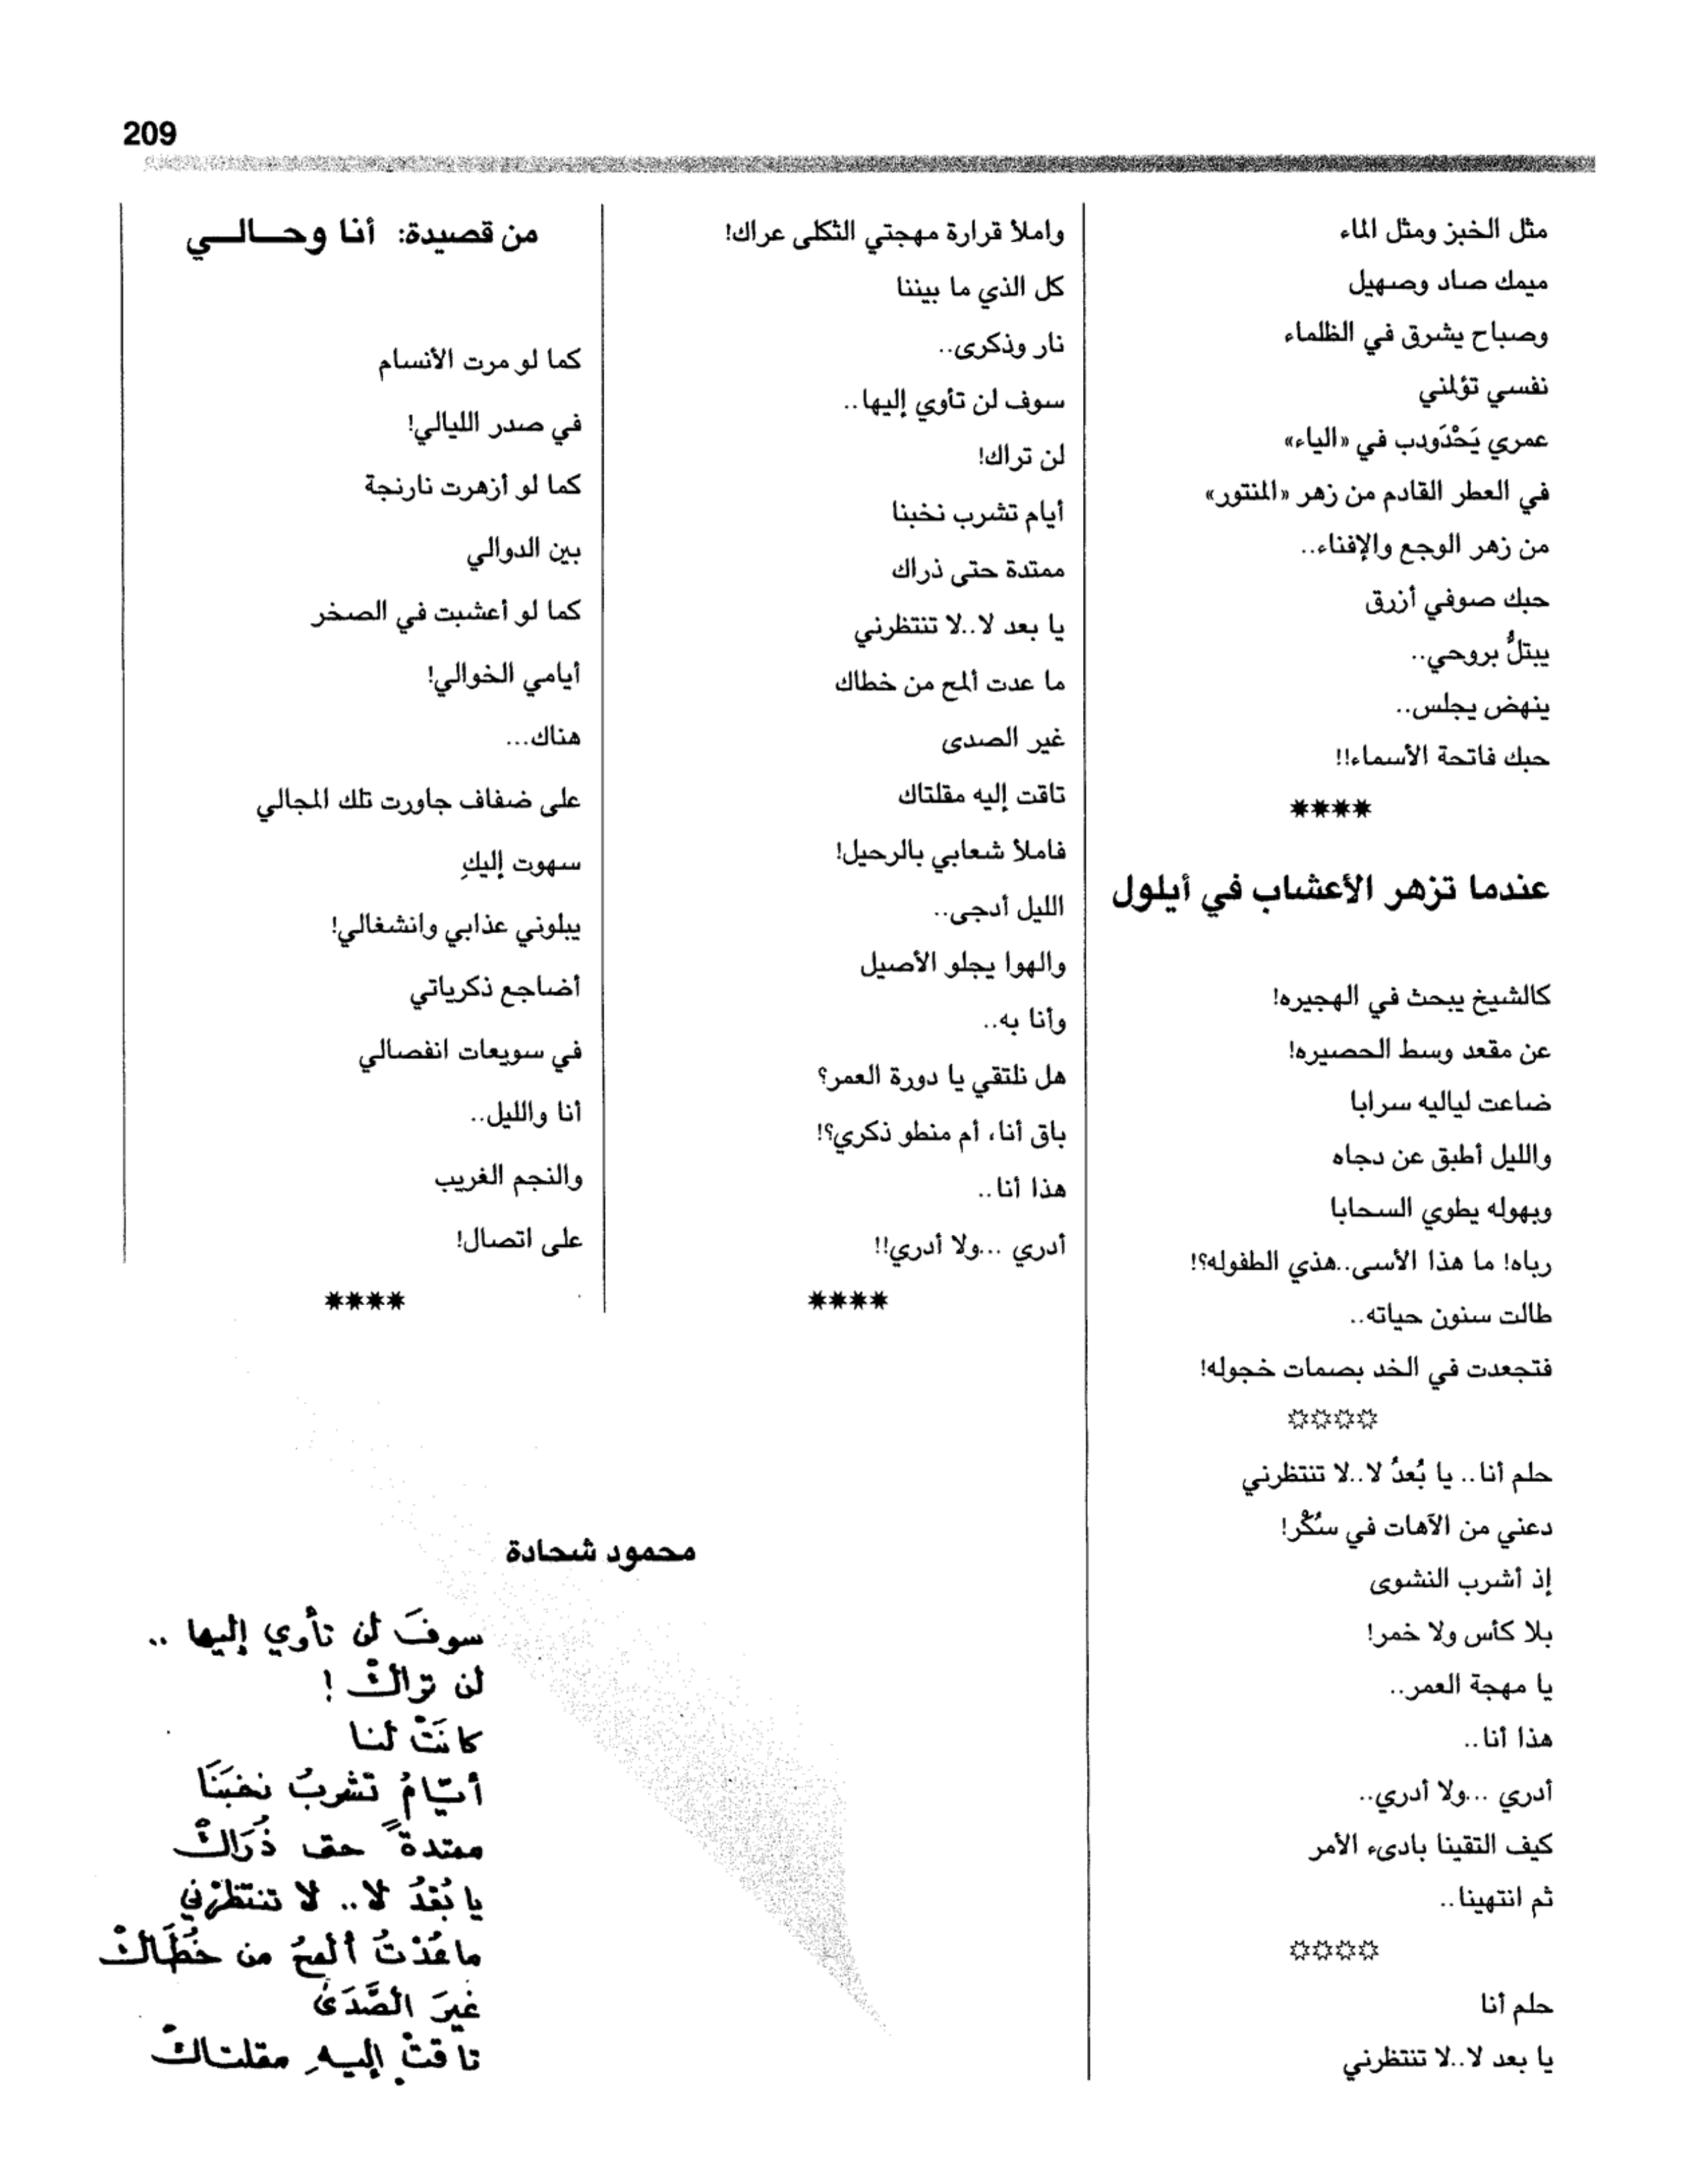 209
مثل الخبز ومثل الماء
ميمك صاد وصهيل
وصباح يشرق في الظلماء
نفسي تؤلمني
عمري يَحْدَودب في «الياء»
في العطر القادم من زهر «المنتور»
من زهر الوجع والإفناء..
حبك صوفي أزرق
يبتلُّ بروحي..
ينهض يجلس..
حبك فاتحة الأسماء!!
****
عندما تزهر الأعشاب في أيلول
كالشيخ يبحث في الهجيره!
عن مقعد وسط الحصيره!
ضاعت لياليه سرابا
والليل أطبق عن دجاه
وبهوله يطوي السحابا
رباه! ما هذا الأسى..هذي الطفوله؟!
طالت سنون حياته..
فتجعدت في الخد بصمات خجوله!
☼☼☼☼
حلم أنا.. يا بُعدُ لا..لا تنتظرني
دعني من الآهات في سُكْر!
إذ أشرب النشوى
بلا كأس ولا خمر!
يا مهجة العمر..
هذا أنا..
أدري ...ولا أدري..
كيف التقينا بادىء الأمر
ثم انتهينا..
☼☼☼☼
حلم أنا
يا بعد لا..لا تنتظرني
واملأ قرارة مهجتي الثكلى عراك!
كل الذي ما بيننا
نار وذكرى..
سوف لن تأوي إليها..
لن تراك!
أيام تشرب نخبنا
ممتدة حتى ذراك
يا بعد لا..لا تنتظرني
ما عدت ألمح من خطاك
غير الصدى
تاقت إليه مقلتاك
فاملأ شعابي بالرحيل!
الليل أدجى..
والهوا يجلو الأصيل
وأنا به..
هل نلتقي يا دورة العمر؟
باق أنا، أم منطو ذكري؟!
هذا أنا..
أدري ...ولا أدري!!
****
من قصيدة: أنا وحـــالـــي
كما لو مرت الأنسام
في صدر الليالي!
كما لو أزهرت نارنجة
بين الدوالي
كما لو أعشبت في الصخر
أيامي الخوالي!
هناك...
على ضفاف جاورت تلك المجالي
سهوت إليكِ
يبلوني عذابي وانشغالي!
أضاجع ذكرياتي
في سويعات انفصالي
أنا والليل..
والنجم الغريب
على اتصال!
****
محمود شحادة
سوفَ لن تأوي إليها ..
لن تراكْ !
كانَتْ لنا
أيّامُ تشربُ نخبَنَا
ممتدةً حتى ذُرَاكْ
يا بُعْدُ لا.. لا تنتظرْني
ما عُدْتُ ألمحُ من خُطَاكْ
غيرَ الصَّدَى
تاقتْ إليهِ مقلتاكْ